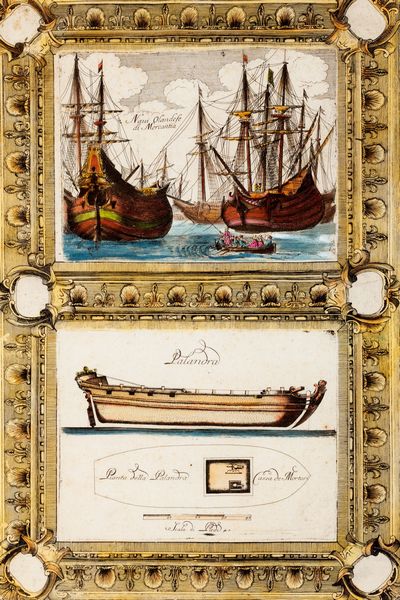 Naui Olandese
di Mercantia
Palandra
Pianta della Palandra
Cassa de Mortari
Scala di Piedi